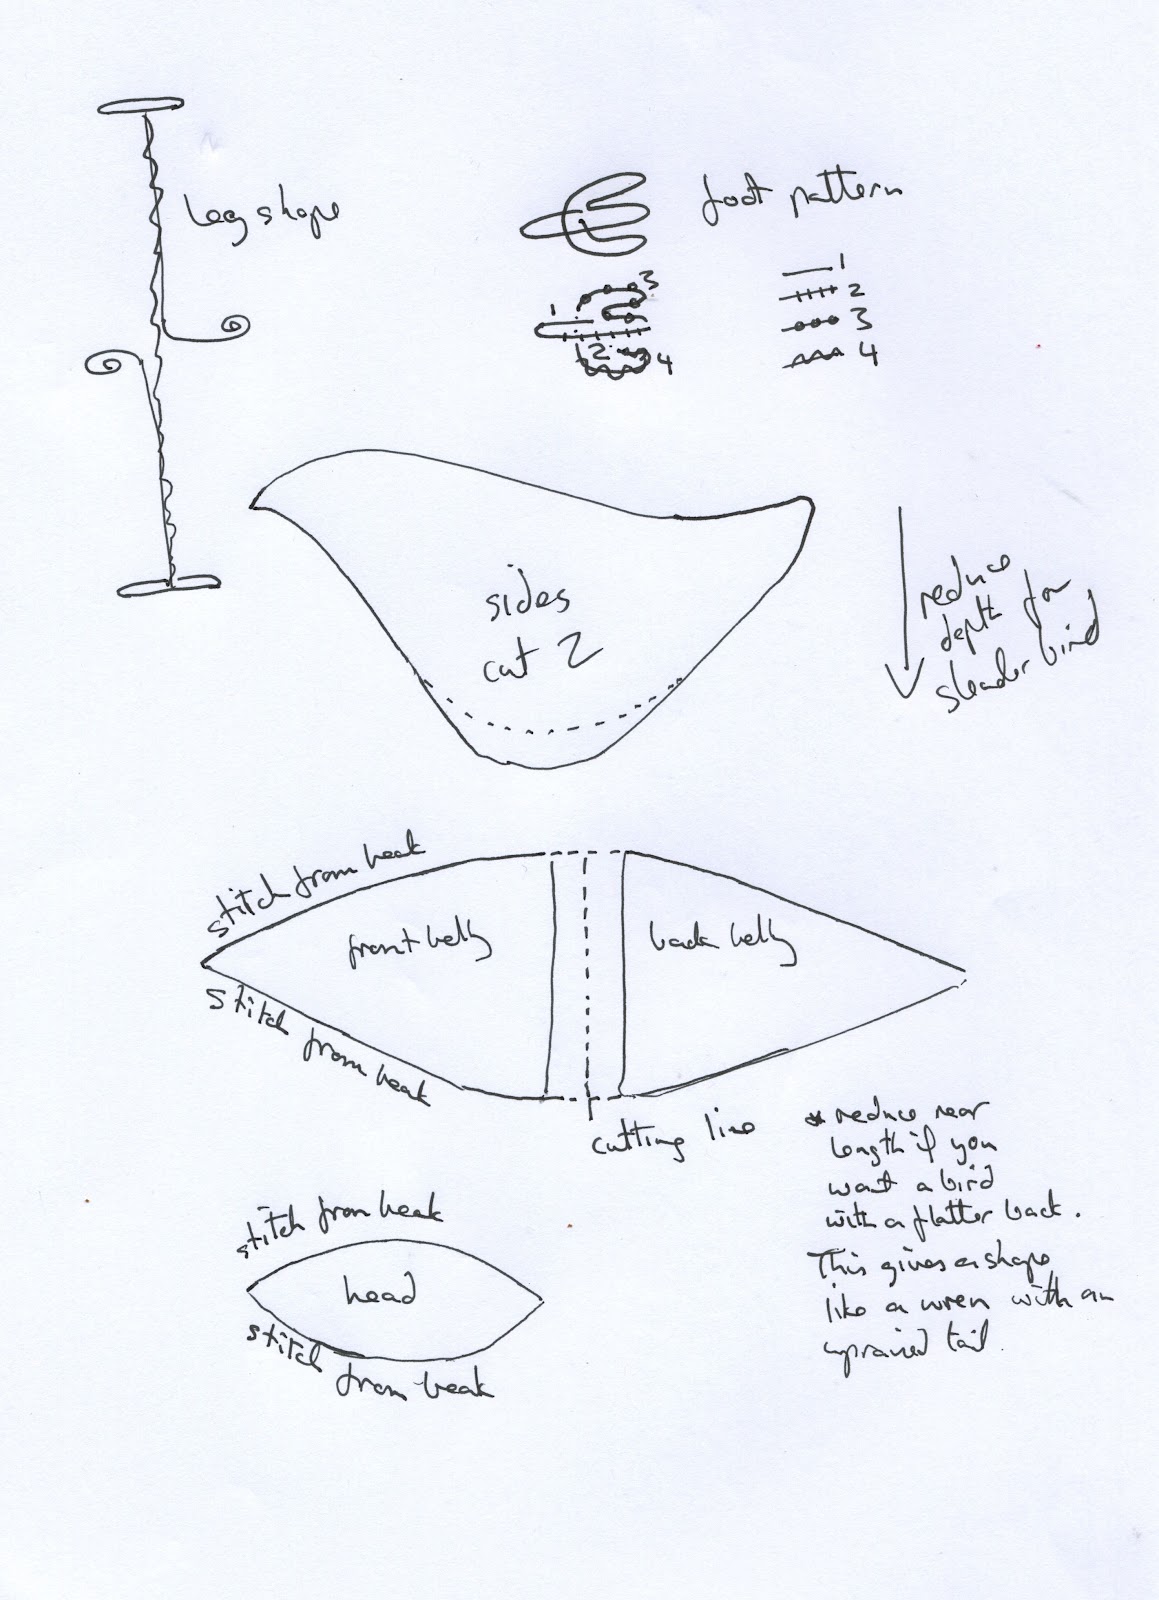 Leg shape
foot pattern
3
1
2
4
1
2
3
4
sides
cut 2
reduce
depth for
slender bird
stitch from beak
front belly
back belly
stitch from beak
cutting line
* reduce rear
length if you
want a bird
with a flatter back.
This gives a shape
like a wren with an
upraised tail.
stitch from beak
head
stitch from beak